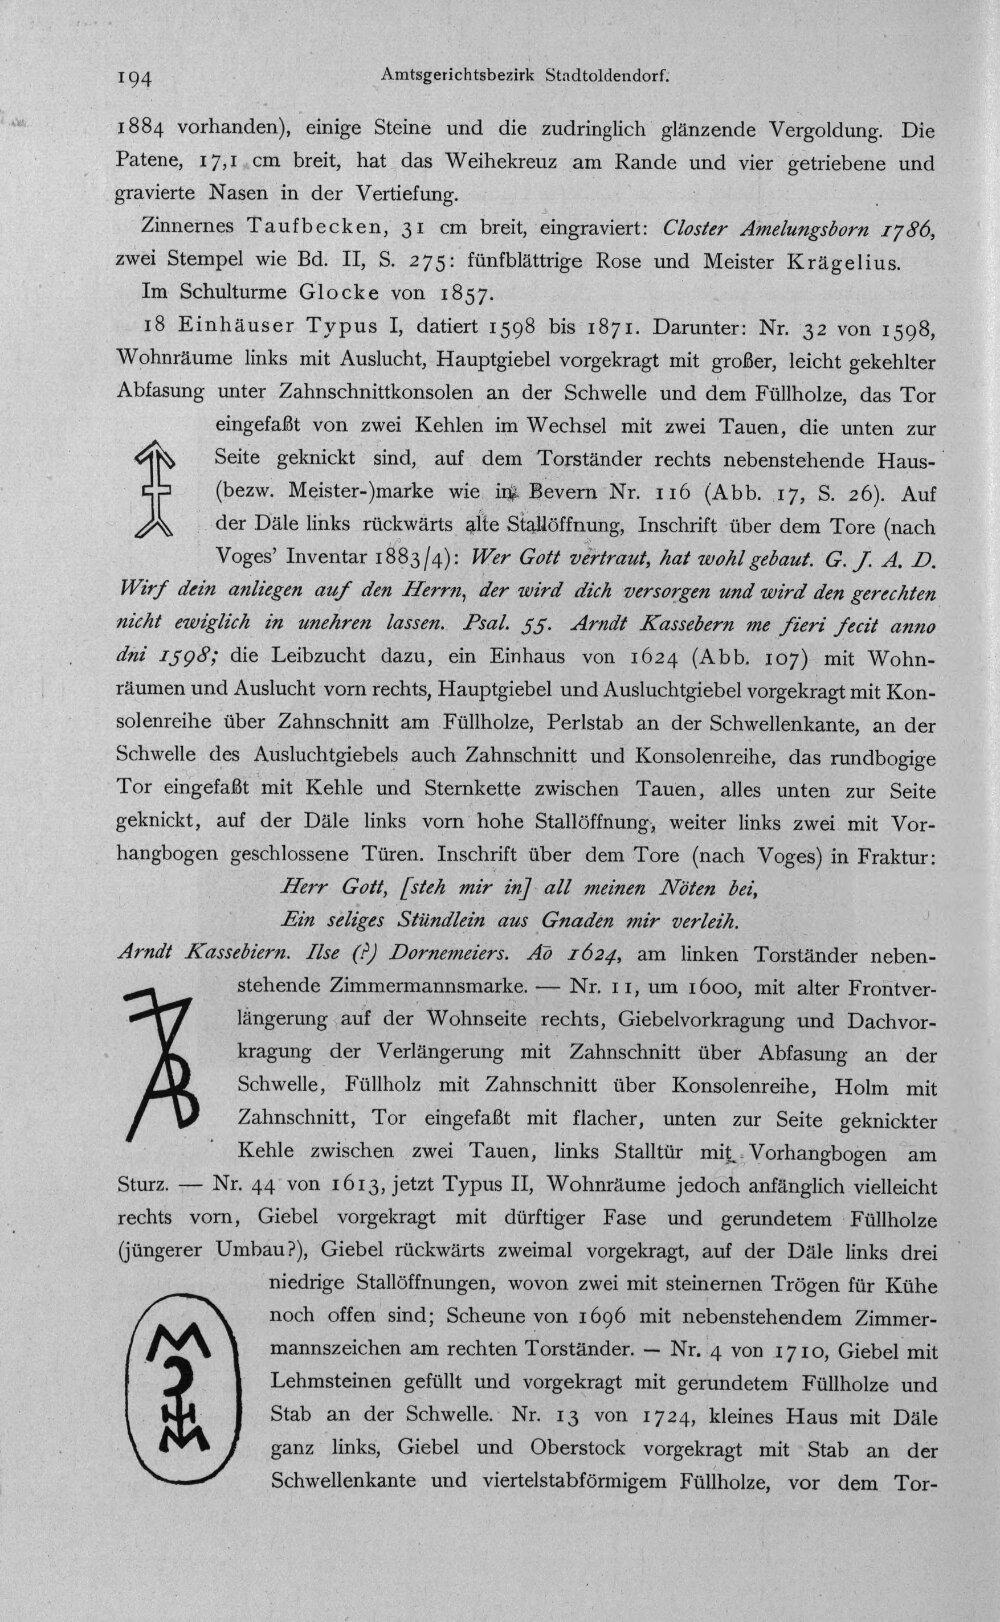 194
Amtsgerichtsbezirk Stadtoldendorf.
1884 vorhanden), einige Steine und die zudringlich glänzende Vergoldung. Die
Patene, 17,1 cm breit, hat das Weihekreuz am Rande und vier getriebene und
gravierte Nasen in der Vertiefung.
Zinnernes Taufbecken, 31 cm breit, eingraviert: Closter Amelungsborn 1786,
zwei Stempel wie Bd. II, S. 275: fünfblättrige Rose und Meister Krägelius.
Im Schulturme Glocke von 1857.
18 Einhäuser Typus I, datiert 1598 bis 1871. Darunter: Nr. 32 von 1598,
Wohnräume links mit Auslucht, Hauptgiebel vorgekragt mit großer, leicht gekehlter
Abfasung unter Zahnschnittkonsolen an der Schwelle und dem Füllholze, das Tor
eingefaßt von zwei Kehlen im Wechsel mit zwei Tauen, die unten zur
Seite geknickt sind, auf dem Torständer rechts nebenstehende Haus-
(bezw. Meister-)marke wie in Bevern Nr. 116 (Abb. 17, S. 26). Auf
der Däle links rückwärts alte Stallöffnung, Inschrift über dem Tore (nach
Voges' Inventar 1883/4): Wer Gott vertraut, hat wohl gebaut. G. J. A. D.
Wirf dein anliegen auf den Herrn, der wird dich versorgen und wird den gerechten
nicht ewiglich in unehren lassen. Psal. 55. Arndt Kassebern me fieri fecit anno
dni 1598; die Leibzucht dazu, ein Einhaus von 1624 (Abb. 107) mit Wohn-
räumen und Auslucht vorn rechts, Hauptgiebel und Ausluchtgiebel vorgekragt mit Kon-
solenreihe über Zahnschnitt am Füllholze, Perlstab an der Schwellenkante, an der
Schwelle des Ausluchtgiebels auch Zahnschnitt und Konsolenreihe, das rundbogige
Tor eingefaßt mit Kehle und Sternkette zwischen Tauen, alles unten zur Seite
geknickt, auf der Däle links vorn hohe Stallöffnung, weiter links zwei mit Vor-
hangbogen geschlossene Türen. Inschrift über dem Tore (nach Voges) in Fraktur:
Herr Gott, [steh mir in] all meinen Nöten bei,
Ein seliges Stündlein aus Gnaden mir verleih.
Arndt Kassebiern. Ilse (?) Dornemeiers. Aō 1624, am linken Torständer neben-
stehende Zimmermannsmarke. — Nr. 11, um 1600, mit alter Frontver-
längerung auf der Wohnseite rechts, Giebelvorkragung und Dachvor-
kragung der Verlängerung mit Zahnschnitt über Abfasung an der
Schwelle, Füllholz mit Zahnschnitt über Konsolenreihe, Holm mit
Zahnschnitt, Tor eingefaßt mit flacher, unten zur Seite geknickter
Kehle zwischen zwei Tauen, links Stalltür mit Vorhangbogen am
Sturz. — Nr. 44 von 1613, jetzt Typus II, Wohnräume jedoch anfänglich vielleicht
rechts vorn, Giebel vorgekragt mit dürftiger Fase und gerundetem Füllholze
(jüngerer Umbau?), Giebel rückwärts zweimal vorgekragt, auf der Däle links drei
niedrige Stallöffnungen, wovon zwei mit steinernen Trögen für Kühe
noch offen sind; Scheune von 1696 mit nebenstehendem Zimmer-
mannszeichen am rechten Torständer. — Nr. 4 von 1710, Giebel mit
Lehmsteinen gefüllt und vorgekragt mit gerundetem Füllholze und
Stab an der Schwelle. Nr. 13 von 1724, kleines Haus mit Däle
ganz links, Giebel und Oberstock vorgekragt mit Stab an der
Schwellenkante und viertelstabförmigem Füllholze, vor dem Tor-